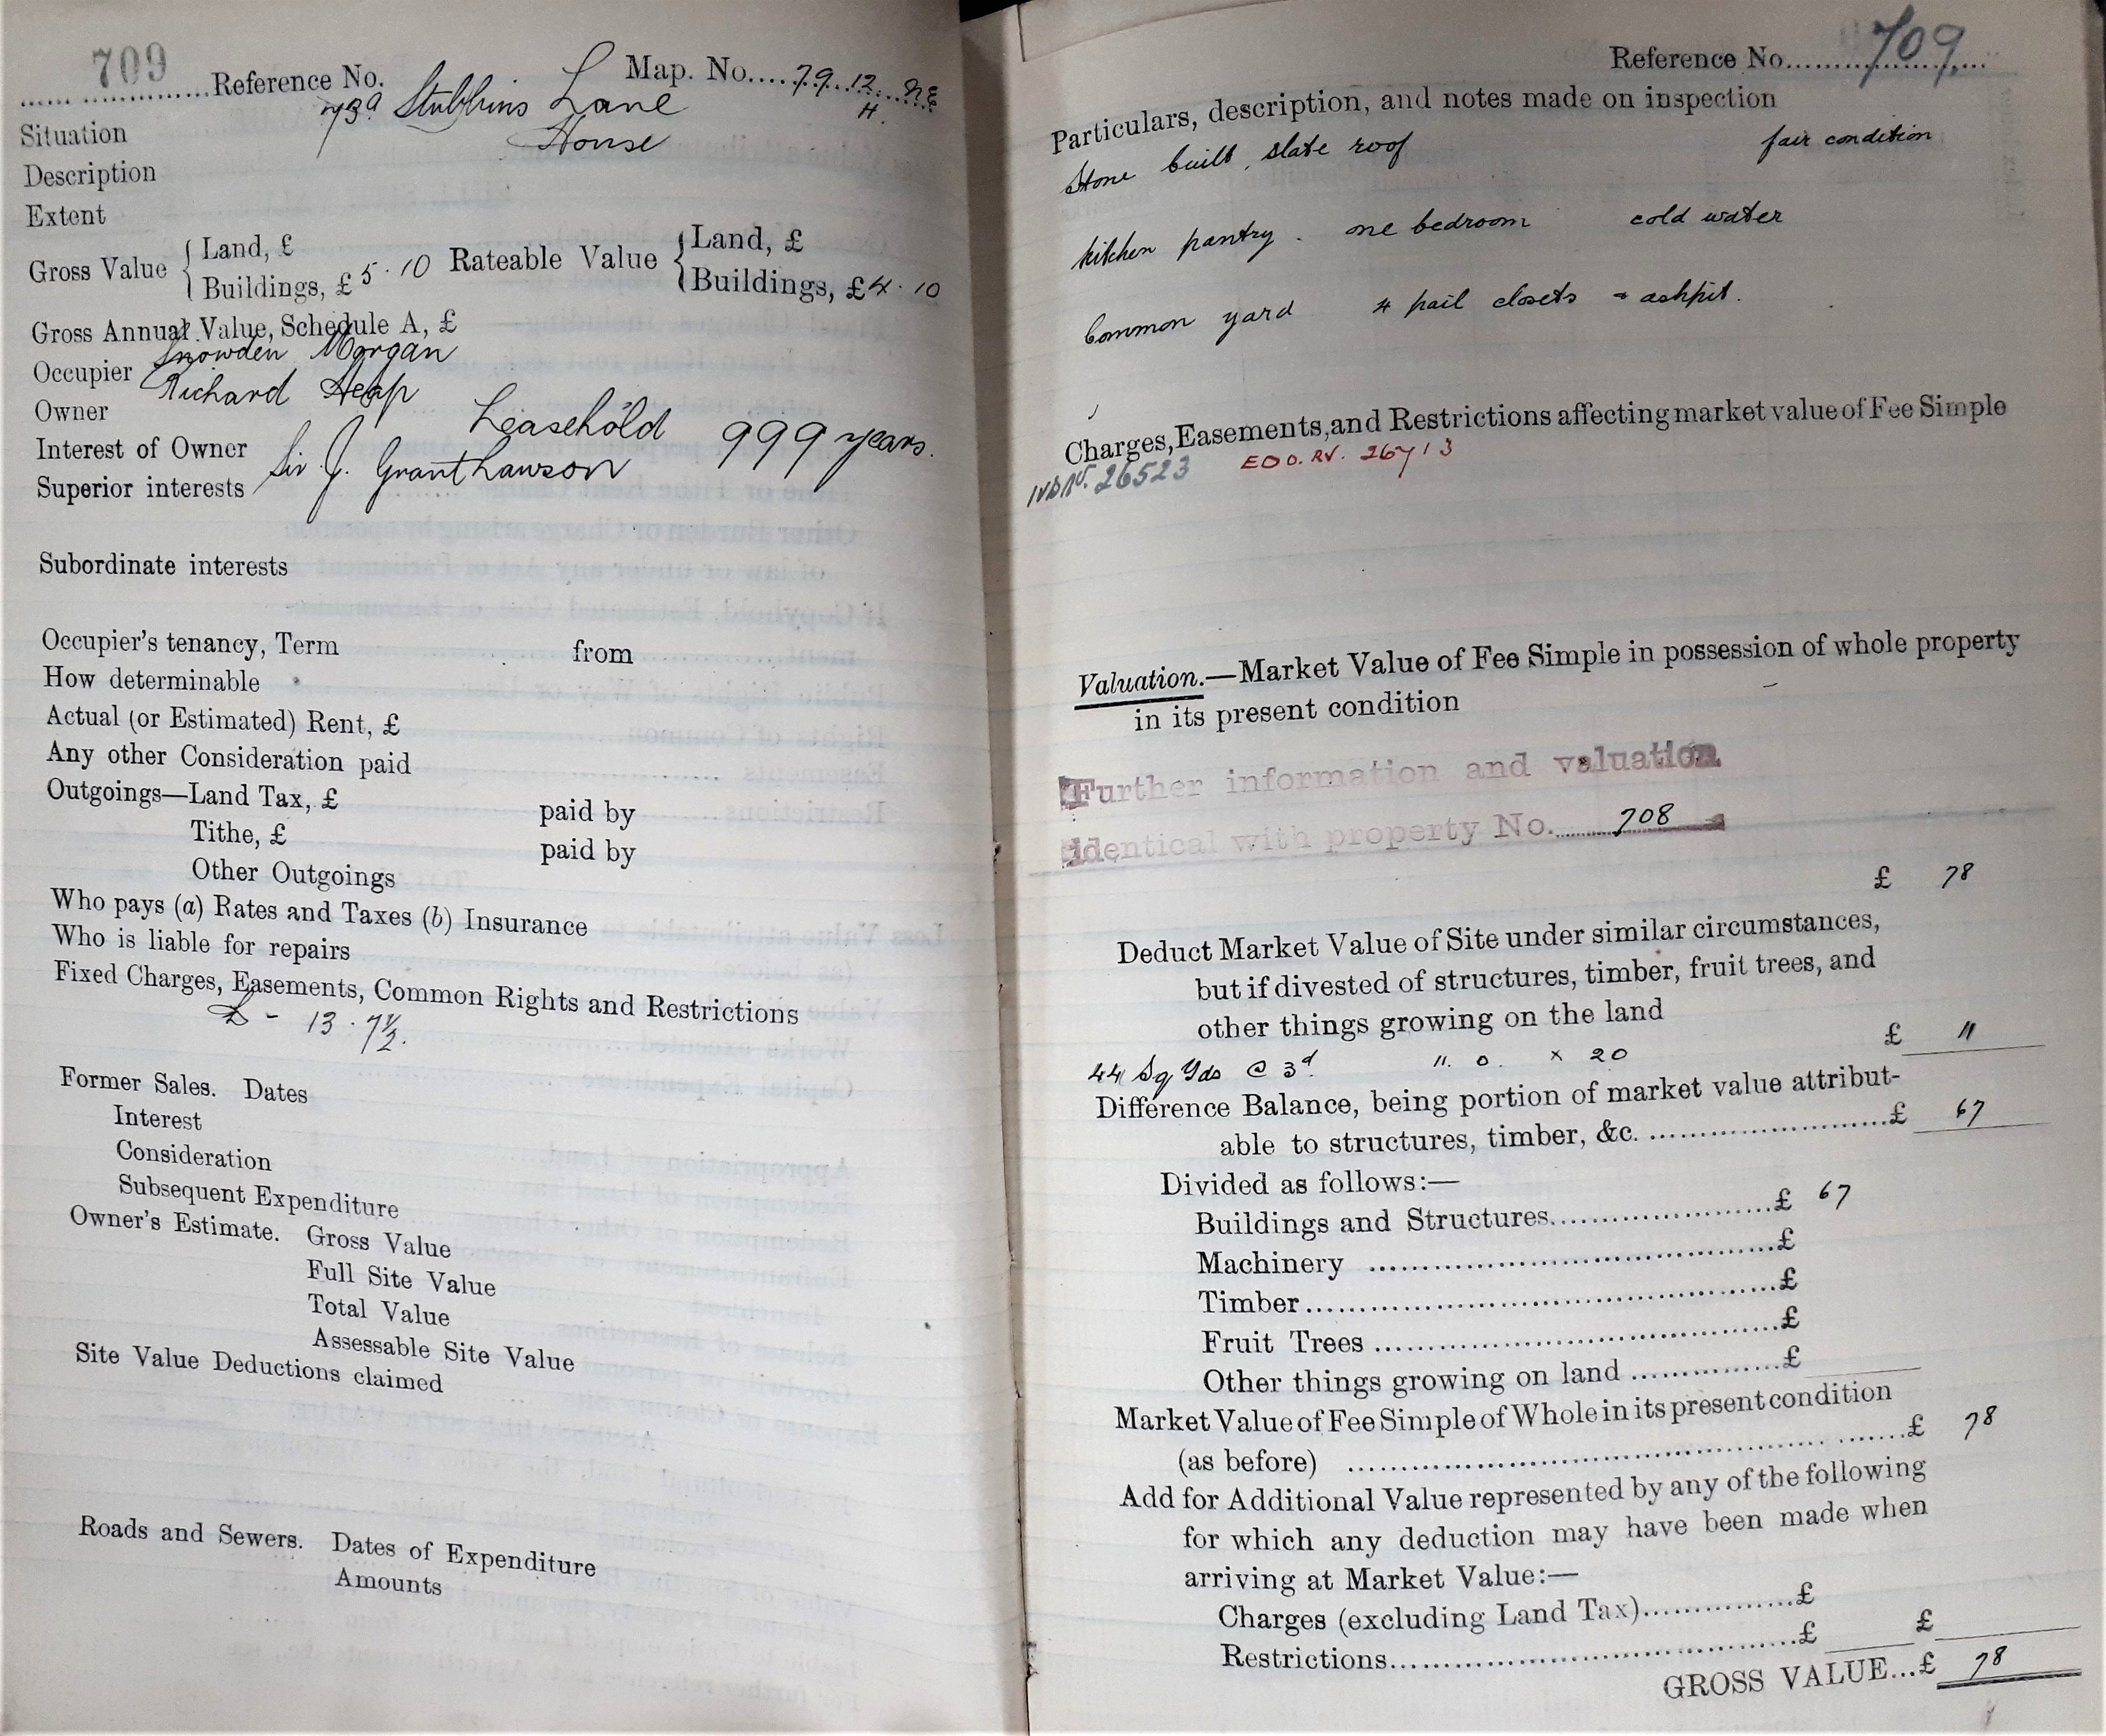 709 Reference No. Map. No. 79. 12. NE
H.
Situation 73a Stubbins Lane
Description House
Extent
Gross Value { Land, £ Rateable Value { Land, £
Buildings, £ 5 . 10 Buildings, £ 4 . 10
Gross Annual Value, Schedule A, £
Occupier Snowden Morgan
Owner Richard Heap
Interest of Owner Leasehold 999 years.
Superior interests Sir J. Grant Lawson
Subordinate interests
Occupier's tenancy, Term from
How determinable
Actual (or Estimated) Rent, £
Any other Consideration paid
Outgoings—Land Tax, £ paid by
Tithe, £ paid by
Other Outgoings
Who pays (a) Rates and Taxes (b) Insurance
Who is liable for repairs
Fixed Charges, Easements, Common Rights and Restrictions
£ - 13 . 7½.
Former Sales. Dates
Interest
Consideration
Subsequent Expenditure
Owner's Estimate. Gross Value
Full Site Value
Total Value
Assessable Site Value
Site Value Deductions claimed
Roads and Sewers. Dates of Expenditure
Amounts
Reference No. 709.
Particulars, description, and notes made on inspection
Stone built, slate roof fair condition
kitchen pantry . one bedroom cold water
Common yard 4 pail closets + ashpit.
Charges, Easements, and Restrictions affecting market value of Fee Simple
IVD No. 26523 EDO. RV. 26713
Valuation.—Market Value of Fee Simple in possession of whole property
in its present condition
Further information and valuation
identical with property No. 708
£ 78
Deduct Market Value of Site under similar circumstances,
but if divested of structures, timber, fruit trees, and
other things growing on the land
£ 11
44 Sq Yds @ 3d. 11. 0. x 20
Difference Balance, being portion of market value attribut-
able to structures, timber, &c. £ 67
Divided as follows:—
Buildings and Structures £ 67
Machinery £
Timber £
Fruit Trees £
Other things growing on land £
Market Value of Fee Simple of Whole in its present condition
(as before) £ 78
Add for Additional Value represented by any of the following
for which any deduction may have been made when
arriving at Market Value:—
Charges (excluding Land Tax) £
Restrictions £ £
GROSS VALUE...£ 78